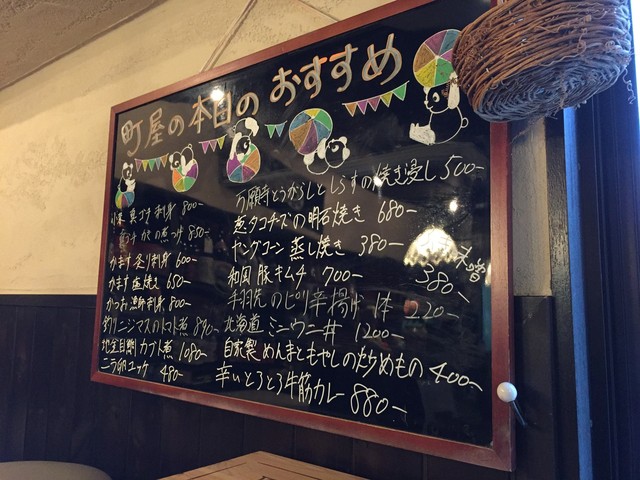 町屋の本日のおすすめ
真ゴチ刺身 800-
の煮つけ 850-
かます炙り刺身 600-
かます塩焼き 650-
かつお 刺身 800-
釣りニジマスのトマト煮 890-
地金目鯛カブト煮 1080-
ニラ卵ユッケ 480-
万願寺とうがらしとしらすの焼き浸し 500-
葱タコチーズの明石焼き 680-
ヤングコーン蒸し焼き 380-
和風豚キムチ 700-
380-
手羽先のピリ辛揚げ 一本 220-
北海道ミニウニ丼 1200-
自家製めんまともやしの炒めもの 400-
辛いとろとろ牛筋カレー 880-